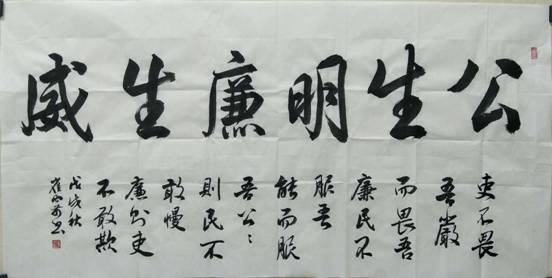 公生明廉生威
吏不畏
吾嚴
而畏吾
廉民不
服吾
能而服
吾公〻
則民不
敢慢
廉則吏
不敢欺
戊戌秋